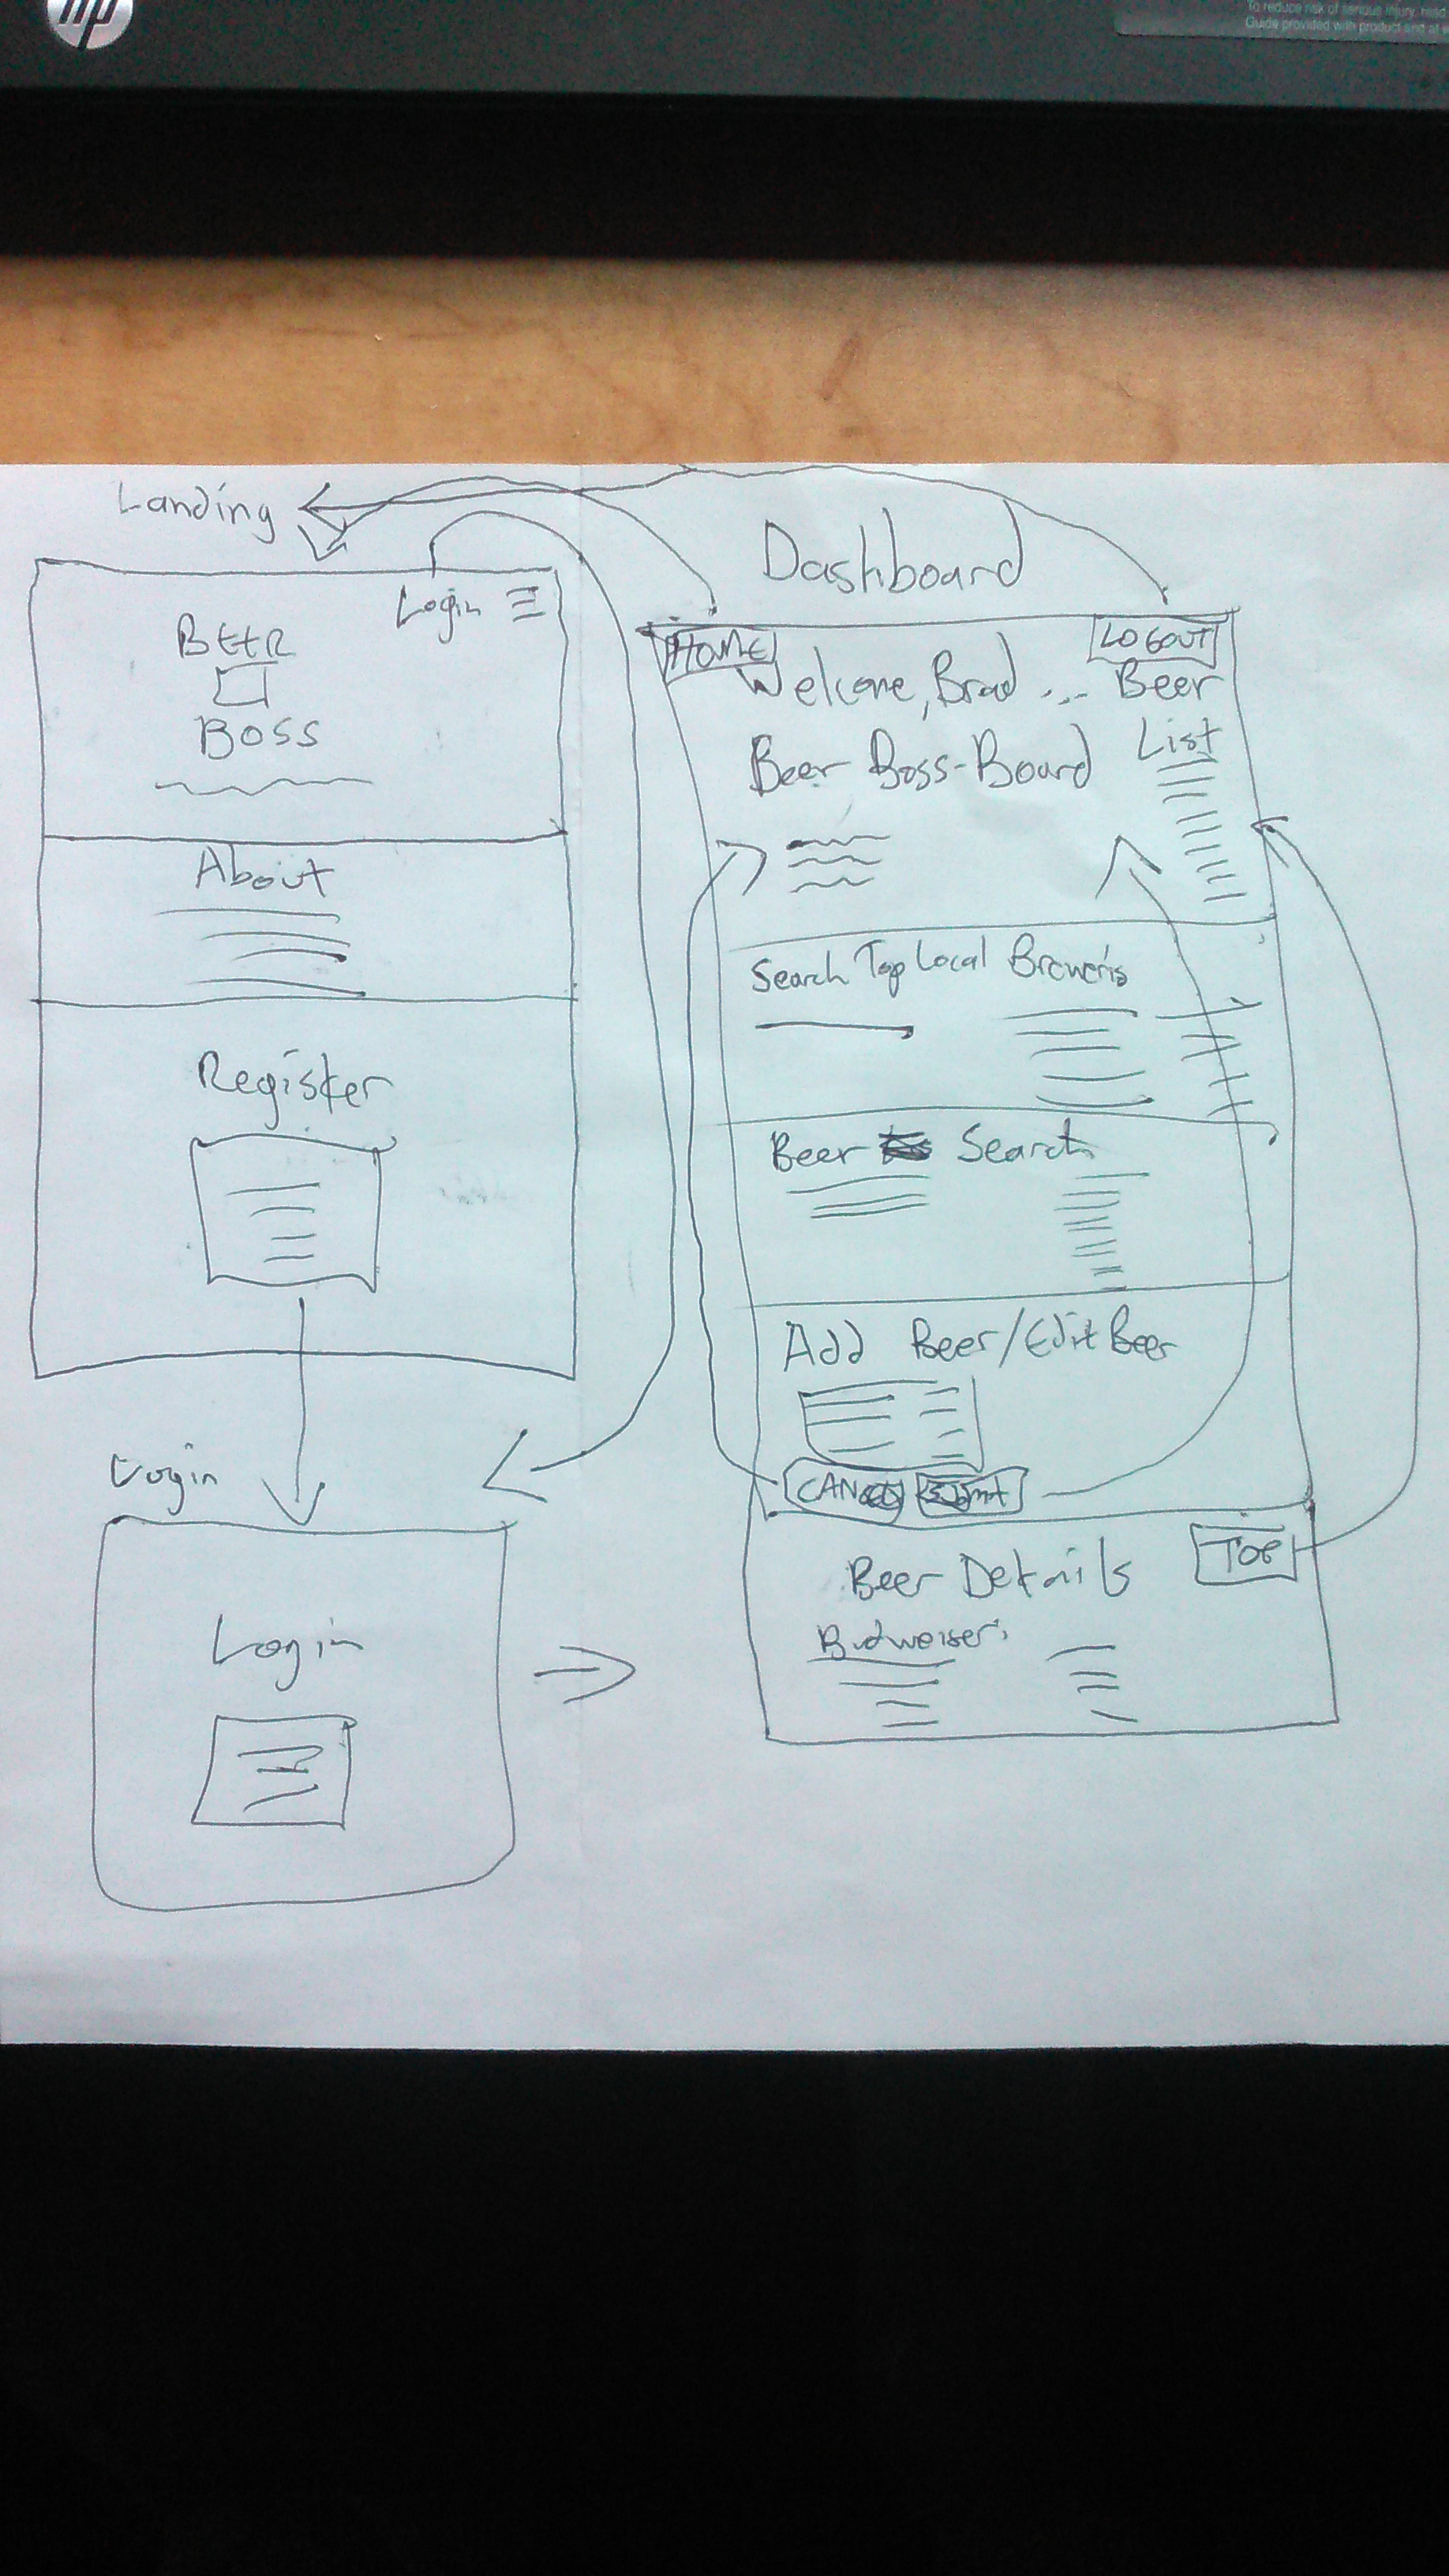 hp
To reduce risk of serious injury, read
Guide provided with product and at w
Landing
Login
BEER
BOSS
About
Register
Login
Login
Dashboard
HOME
LOGOUT
Welcome, Brad ... Beer
Beer Boss-Board List
Search Top Local Breweris
Beer Search
Add Beer/Edit Beer
CANCEL Submit
Beer Details
TOP
Budweiser: